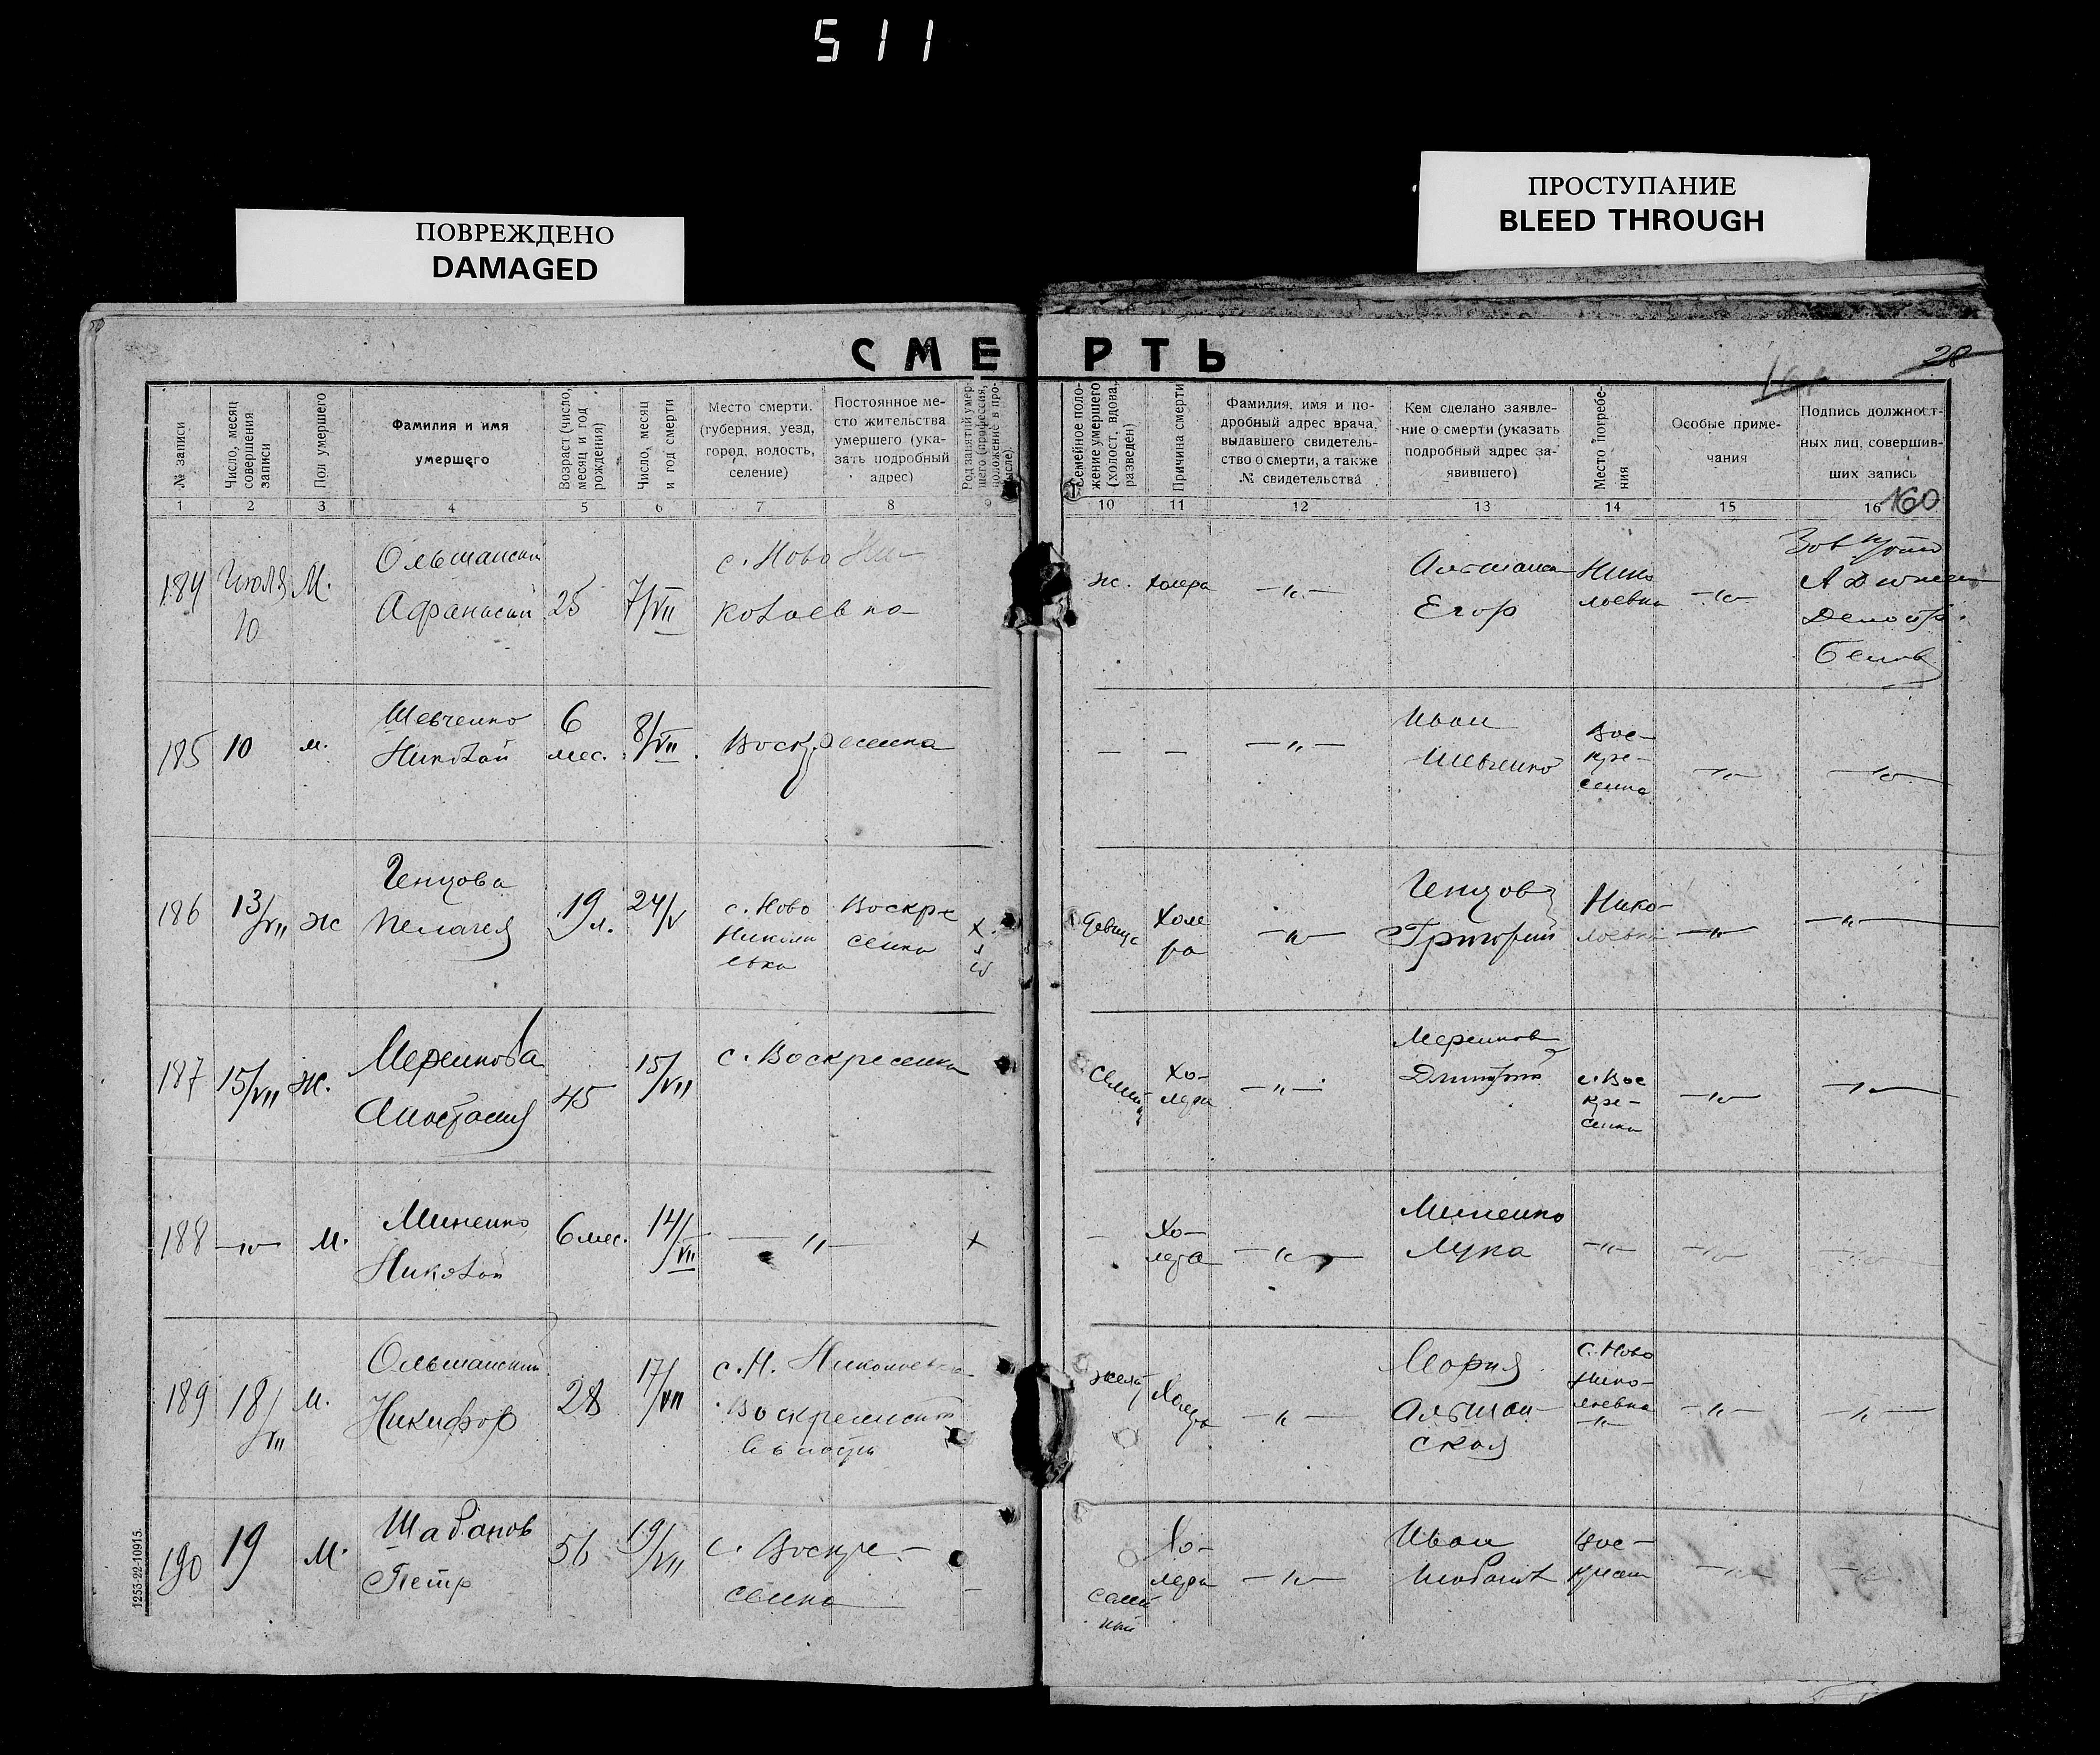 511
ПОВРЕЖДЕНО
DAMAGED
ПРОСТУПАНИЕ
BLEED THROUGH
СМЕРТЬ
28
№ записи
Число, месяц совершения записи
Пол умершего
Фамилия и имя
умершего
Возраст (число, месяц и год рождения)
Число, месяц и год смерти
Место смерти.
(губерния, уезд,
город, волость,
селение)
Постоянное ме-
сто жительства
умершего (ука-
зать подробный
адрес)
Род занятий умер-
шего (профессия,
положение в про-
мысле)
Семейное поло-
жение умершего
(холост, вдова,
разведен)
Причина смерти
Фамилия, имя и по-
дробный адрес врача,
выдавшего свидетель-
ство о смерти, а также
№ свидетельства
Кем сделано заявле-
ние о смерти (указать
подробный адрес за-
явившего)
Место погребе-
ния
Особые приме-
чания
Подпись должност-
ных лиц, совершив-
ших запись
1 2 3 4 5 6 7 8 9 10 11 12 13 14 15 16
160
184 Июля 10 М.
Ольшанский
Афанасий
25 7/VII
с. Ново Ни-
колаевка
ж. холера —"—
Альшанск
Егор
Нико
лаевка
—"—
185 10 м.
Шевченко
Николай
6
мес.
8/VII
Воскресенка
— — —"—
Иван
Шевченко
Вос-
кре-
сенка
—"— —"—
186 13/VII ж
Генцова
Пелагея
19 л. 24/V
с. Ново
Никола
евка
Воскре
сенка
девица
Холе
ра
—"—
Генцов
Григорий
Нико-
лаевка
—"— —"—
187 15/VII ж.
Меренкова
Анастасия
45 15/VII
с. Воскресенка
Хо-
лера
—"—
Меренков
Дмитрий
с. Вос
кре-
сенка
—"— —"—
188 —"— М.
Миненко
Николай
6 мес. 14/VII
—"—
х
—
Хо-
лера
—"—
Миненко
Лука
—"— —"—
189 18/VII м.
Ольшанский
Никифор
28 17/VII
с. Н. Николаевка
Воскресенской
Холера
—"—
Мария
Альшан-
ская
с. Ново
Нико-
лаевка
—"—
—"— —"—
190 19 М.
Шабанов
Петр
56 19/VII
с. Воскре-
сенка
семей
ный
Хо-
лера
—"—
Иван
Шабанов
Вос-
кресен
—"—
1253-22-10915.